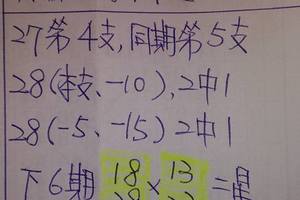 27第4支,同期第5支
28(本支、-10),2中1
28(-5、-15)2中1
下6期 18 × 13 =星